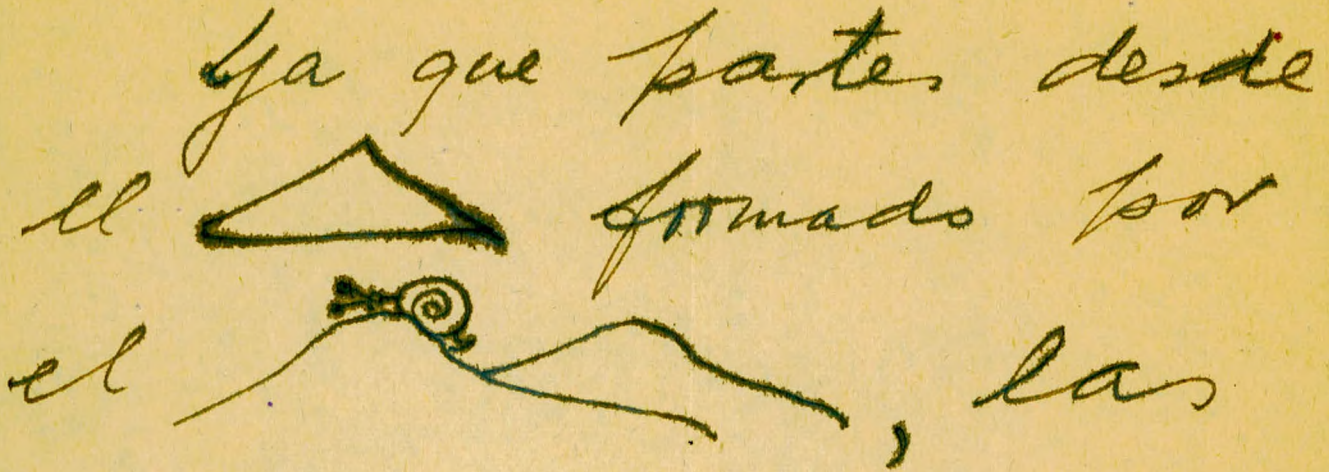 Ya que partes desde
el formado por
el , las